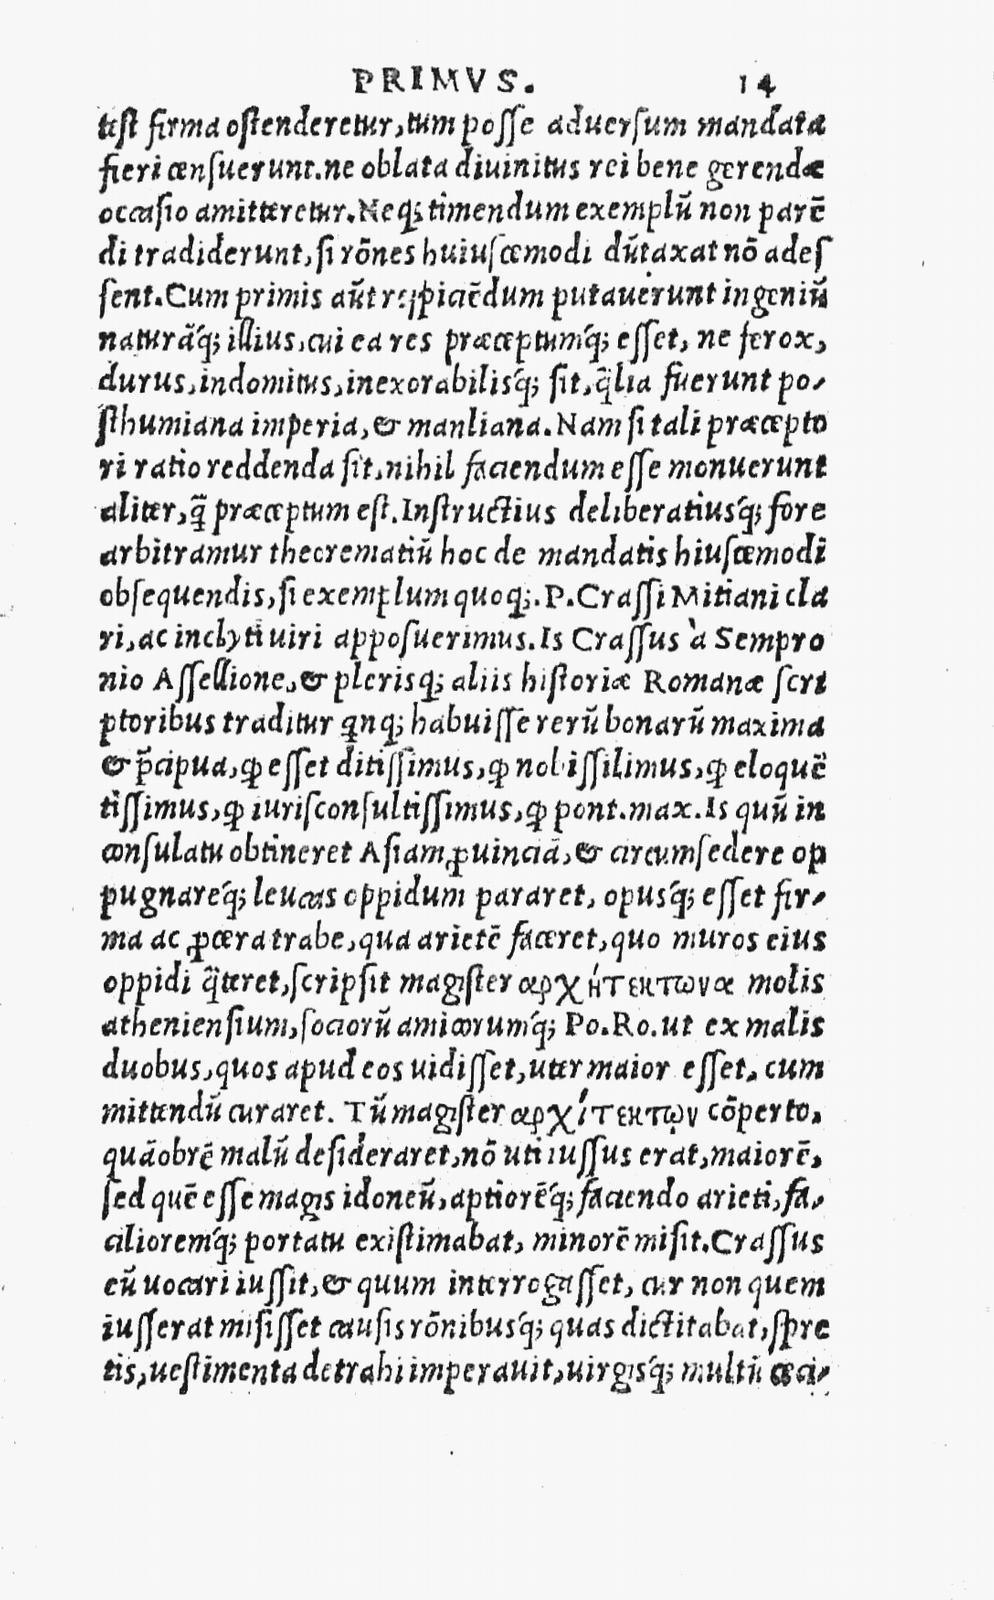 PRIMVS. 14
tiſt firma oſtenderetur, tum poſſe aduerſum mandata
fieri cenſuerunt. ne oblata diuinitus rei bene gerendæ
occaſio amitteretur. Neq; timendum exemplū non parē
di tradiderunt, ſi rōnes huiuſcemodi dūtaxat nō adeſ
ſent. Cum primis aūt reſpiciēdum putauerunt ingeniū
naturāq́; illius, cui ea res præceptumq́; eſſet, ne ferox,
durus, indomitus, inexorabilisq́; ſit, q̄lia fuerunt po-
ſthumiana imperia, & manliana. Nam ſi tali præcepto
ri ratio reddenda ſit, nihil faciendum eſſe monuerunt
aliter, q̄ præceptum eſt. Inſtructius deliberatiusq́; fore
arbitramur theorematiū hoc de mandatis hiuſcemodi
obſequendis, ſi exemplum quoq;. P. Craſſi Mitiani cla
ri, ac inclyti uiri appoſuerimus. Is Craſſus à Sempro
nio Aſſellione, & plerisq; aliis hiſtoriæ Romanæ ſcri
ptoribus traditur qnq; habuiſſe rerū bonarū maxima
& p̄cipua, ꝙ eſſet ditiſſimus, ꝙ nobiſſilimus, ꝙ eloquē
tiſſimus, ꝙ iuriſconſultiſſimus, ꝙ pont. max. Is quū in
conſulatu obtineret Aſiam ꝓuinciā, & circumſedere op
pugnareq́; leucas oppidum pararet, opusq́; eſſet fir-
ma ac ꝓcera trabe, qua arietē faceret, quo muros eius
oppidi q̄teret, ſcripſit magiſter αρχήτεκτωνα molis
athenienſium, ſociorū amicorumq́; Po. Ro. ut ex malis
duobus, quos apud eos uidiſſet, uter maior eſſet, cum
mittendū curaret. Tū magiſter αρχίτεκτων cōperto,
quāobrē malū deſideraret, nō uti iuſſus erat, maiorē,
ſed quē eſſe magis idoneū, aptiorēq́; faciendo arieti, fa-
cilioremq́; portatu exiſtimabat, minorē miſit. Craſſus
eū uocari iuſſit, & quum interrogaſſet, cur non quem
iuſſerat miſiſſet cauſis rōnibusq́; quas dictitabat, ſpre
tis, ueſtimenta detrahi imperauit, uirgisq́; multū cæci-